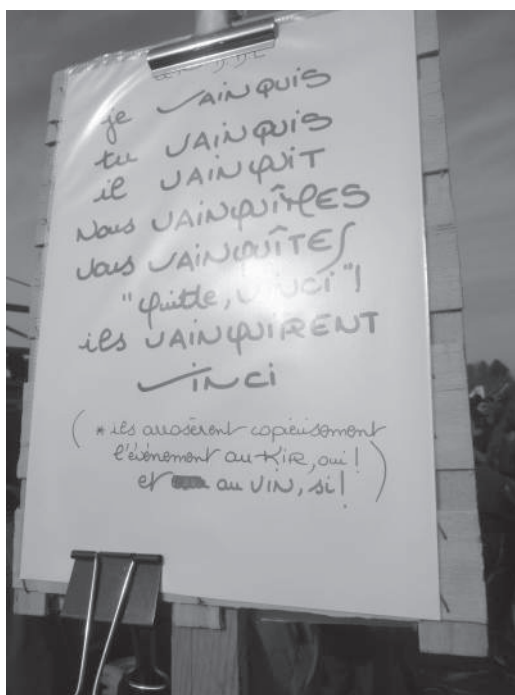 je VAINQUIS
tu VAINQUIS
il VAINQUIT
Nous VAINQUÎMES
Vous VAINQUÎTES
"Quitte, VINCI"!
ils VAINQUIRENT
VINCI
(* ils arrosèrent copieusement
l'événement au KIR, oui!
et au VIN, si!)